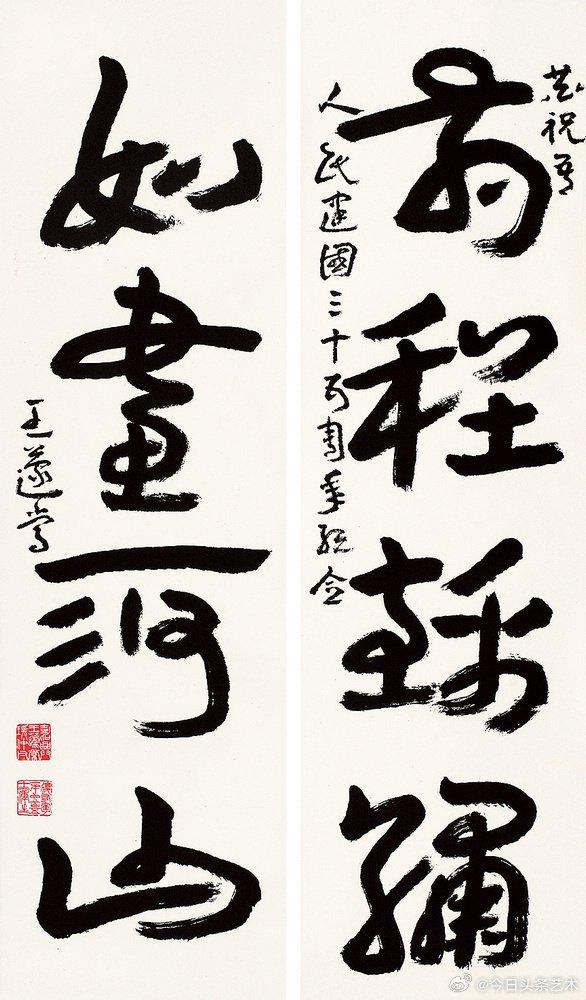 前程錦繡
恭祝
人民建國三十五周年紀念
如畫河山
王蘧常
@今日头条艺术